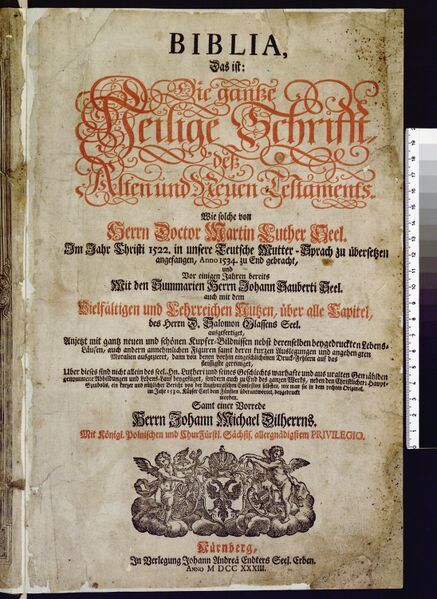 BIBLIA,
Das ist:
Die gantze
Heilige Schrifft,
deß
Alten und Neuen Testaments.
Wie solche von
Herrn Doctor Martin Luther Seel.
Im Jahr Christi 1522. in unsere Teutsche Mutter-Sprach zu übersetzen
angefangen, Anno 1534. zu End gebracht,
und
Vor einigen Jahren bereits
Mit den Summarien Herrn Johann Sauberti Seel.
auch mit dem
Vielfältigen und Lehrreichen Nutzen, über alle Capitel,
des Herrn D. Salomon Glassens Seel.
ausgefertiget,
Anjetzt mit gantz neuen und schönen Kupfer-Bildnissen nebst derenselben beygedruckten Lebens-
Läufen, auch andern annehmlichen Figuren samt deren kurtzen Auslegungen und angehengten
Moralien ausgezieret, dann von denen vorhin eingeschlichenen Druck-Fehlern auf das
fleissigste gereiniget,
Uber dieses sind nicht allein des seel. Hn. Lutheri und seines Geschlechts warhafte und aus uralten Gemählden
genommene Abbildungen und Lebens-Lauf beygefüget, sondern auch zu End des gantzen Werks, neben den Christlichen Haupt-
Symbolis, ein kurtzer und nützlicher Bericht von der Augspurgischen Confession
im Jahr 1530. Kayser Carl dem Fünften überantwortet, beygedruckt
worden.
Samt einer Vorrede
Herrn Johann Michael Dilherrns.
Mit Königl. Polnischen und ChurFürstl. Sächsis. allergnädigstem PRIVILEGIO.
Nürnberg,
In Verlegung Johann Andreä Endters Seel. Erben.
ANNO M DCC XXXIII.